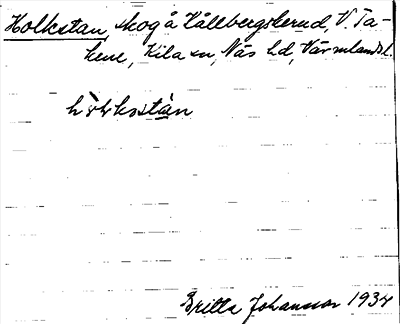 Holkstan, skog å Källbergskerud, V. Ta-
kene, Kila sn, Näs hd, Värmland l.
Britta Johansson 1934